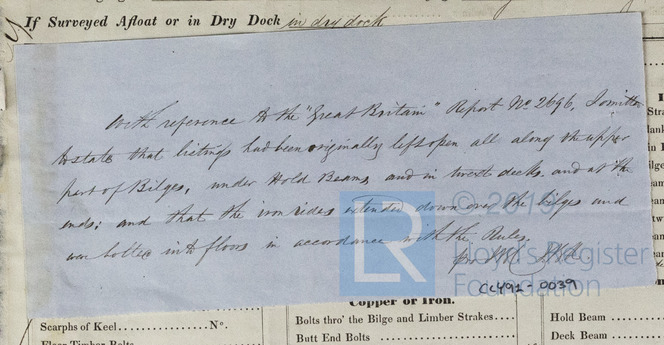 If Surveyed Afloat or in Dry Dock in dry dock
With reference to the "Great Britain" Report No 2696, I omitted
to state that listings had been originally left open all along the upper
part of Bilges, under Hold Beams, and in twixt decks and at the
ends; and that the iron rides extended down over the bilges and
were bolted into floors in accordance with the Rules.
© 201
LR
Lloyd's Register
Foundation
CC491-0039
Copper or Iron.
Scarphs of Keel No.
Bolts thro' the Bilge and Limber Strakes
Hold Beam
Floor Timber Bolts
Butt End Bolts
Deck Beam